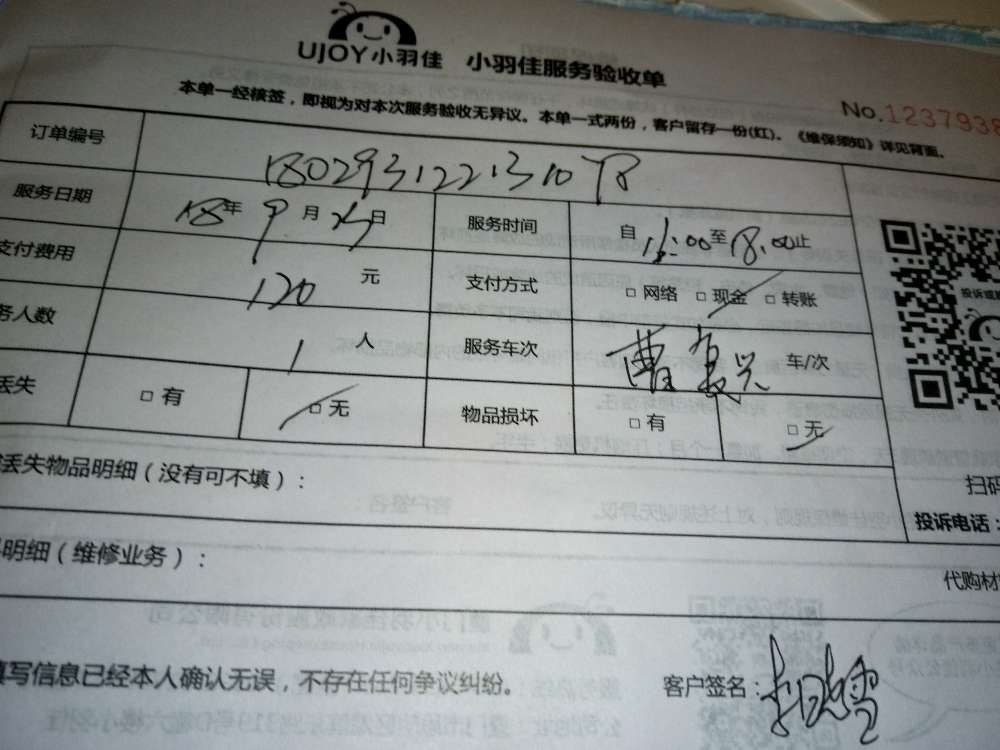 UJOY小羽佳 小羽佳服务验收单
No.1237938
本单一经核签，即视为对本次服务验收无异议。本单一式两份，客户留存一份(红)。《维保须知》详见背面。
订单编号 180293122131078
服务日期 18年9月25日 服务时间 自16:00至18:00止
支付费用 120元 支付方式 □网络 □现金 □转账
务人数 1人 服务车次 曹复兴 车/次
丢失 □有 □无 物品损坏 □有 □无
投诉或
扫码
投诉电话：
丢失物品明细（没有可不填）：
明细（维修业务）： 代购材
填写信息已经本人确认无误，不存在任何争议纠纷。 客户签名：